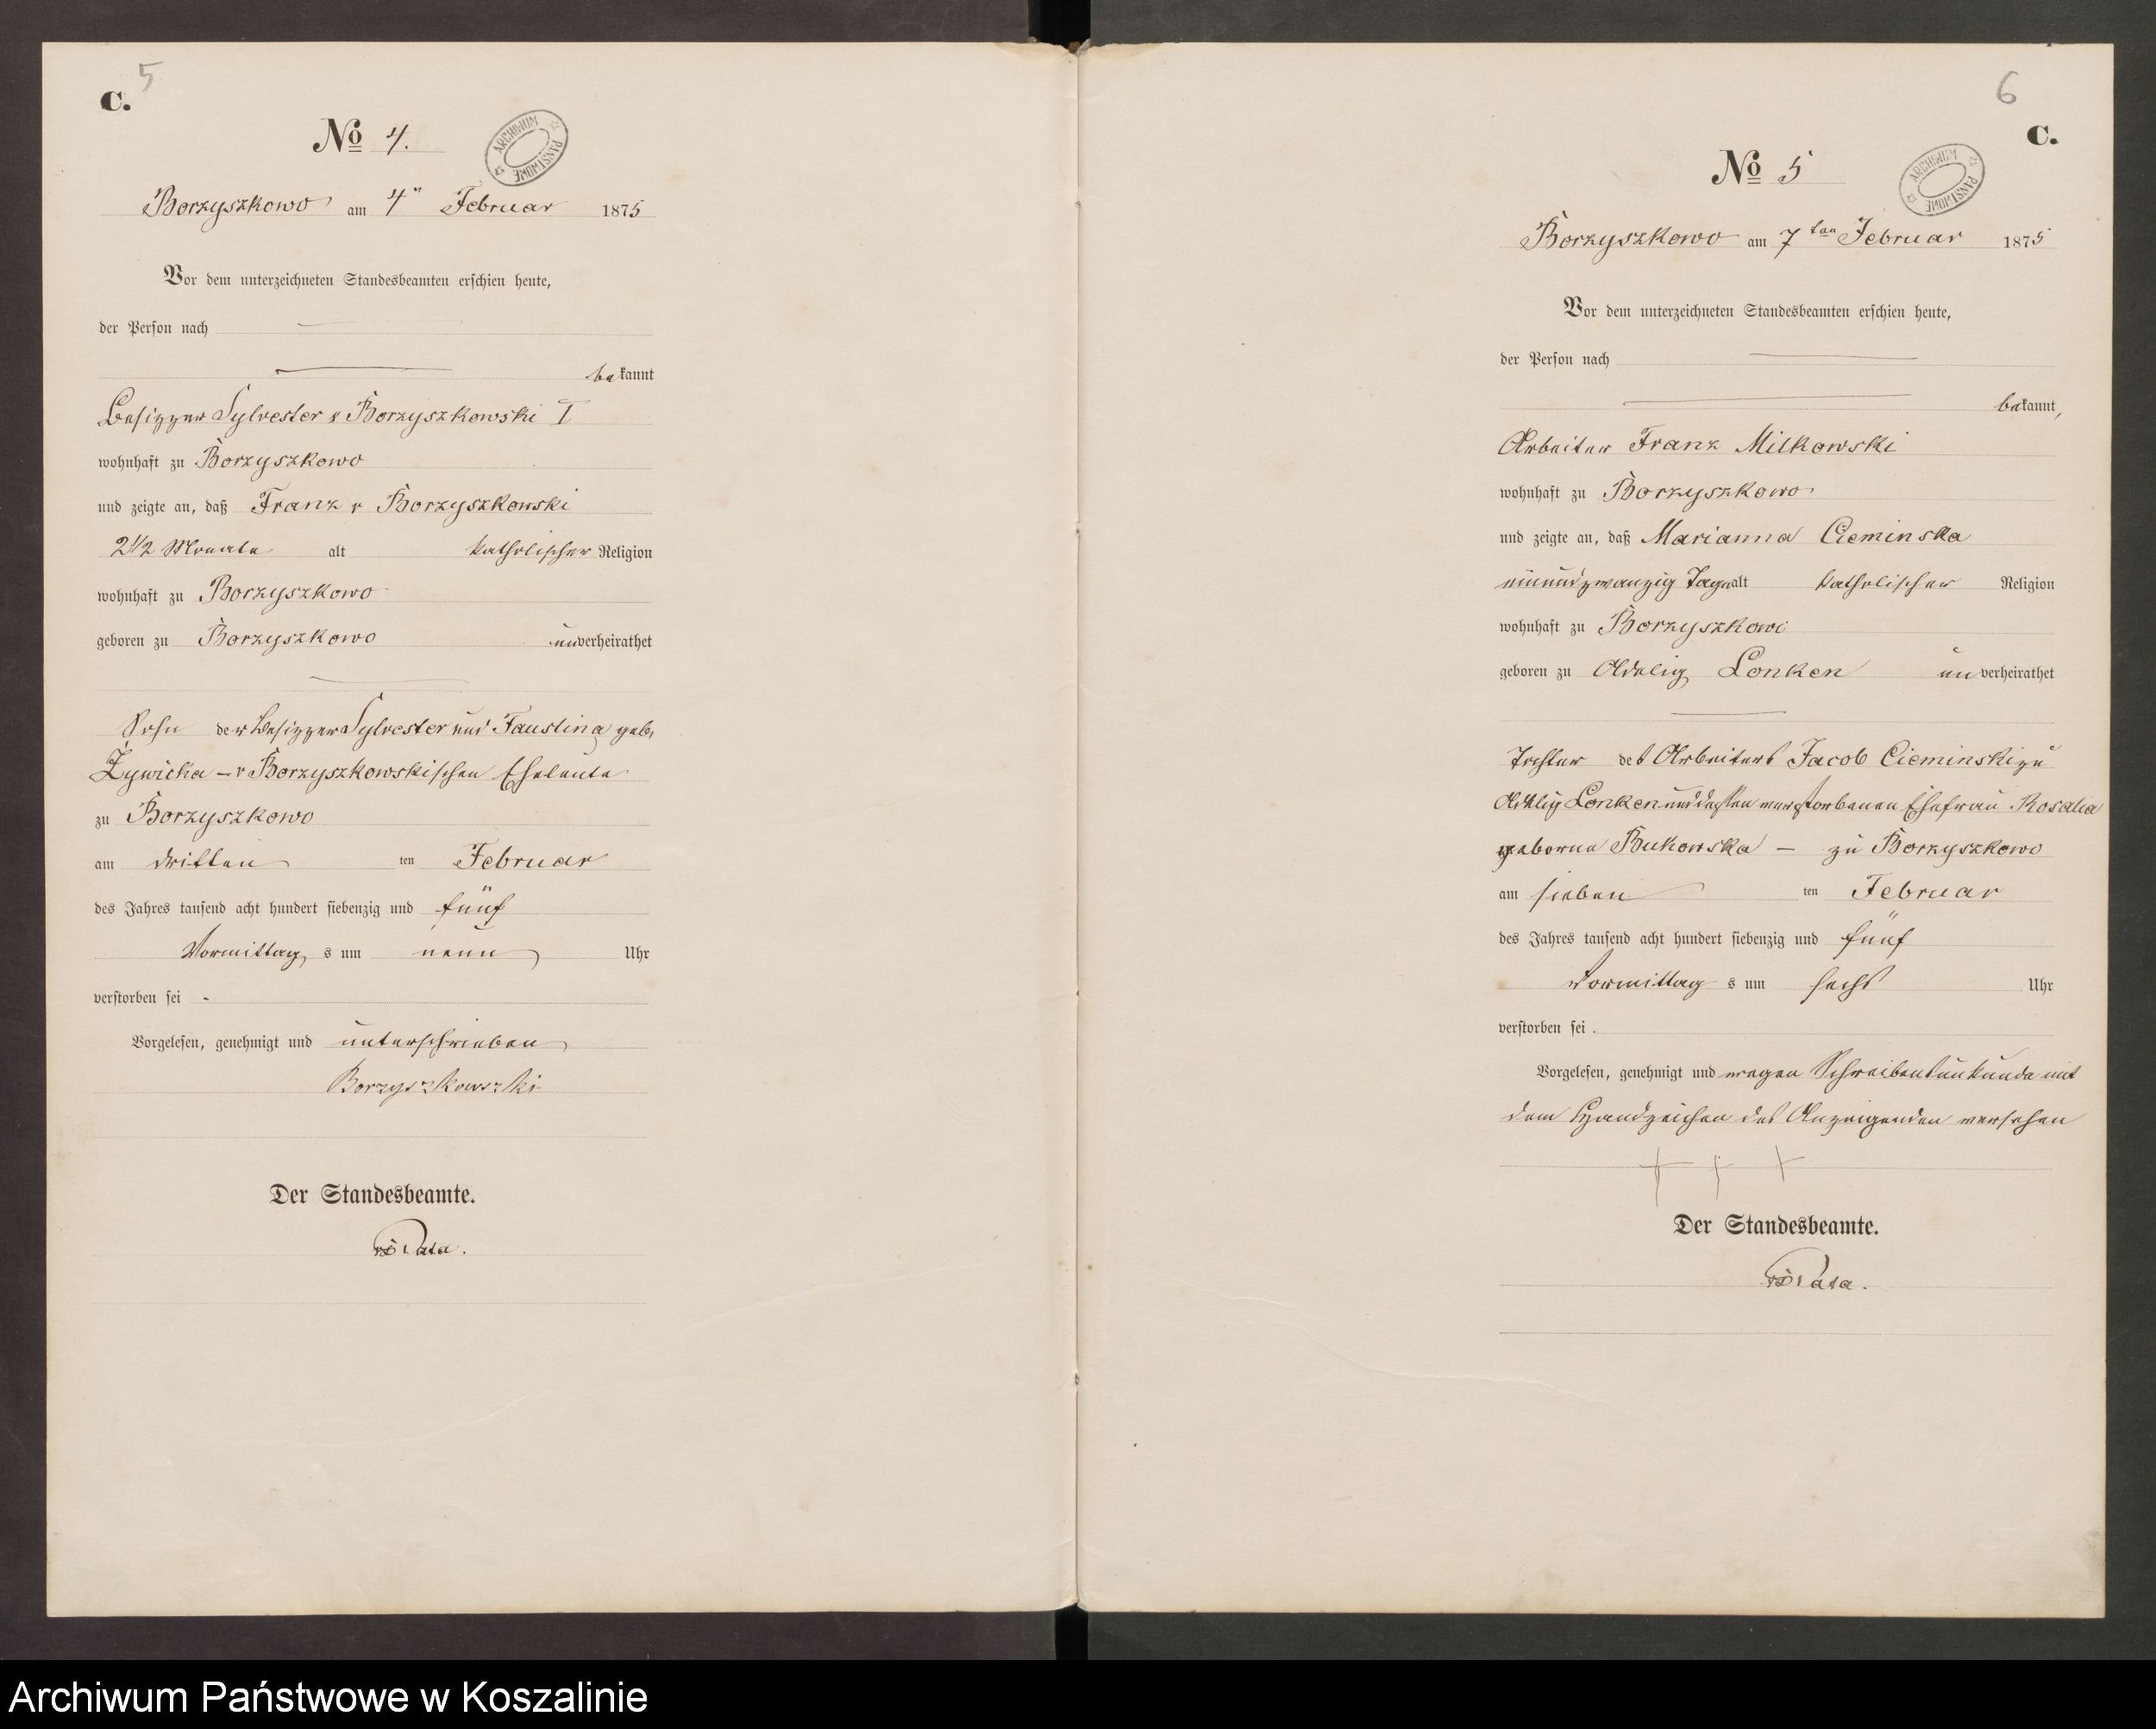 C.
5
No 4.
ARCHIWUM PAŃSTWOWE
Borzyszkowo am 4" Februar 1875
Vor dem unterzeichneten Standesbeamten erschien heute,
der Person nach
bekannt
Besizzer Sylvester v Borzyszkowski I
wohnhaft zu Borzyszkowo
und zeigte an, daß Franz v Borzyszkowski
2 1/2 Monate alt katholischer Religion
wohnhaft zu Borzyszkowo
geboren zu Borzyszkowo unverheirathet
Sohn der Besizzer Sylvester und Faustina geb.
Żywicka - v Borzyszkowskischen Eheleute
zu Borzyszkowo
am dritten ten Februar
des Jahres tausend acht hundert siebenzig und fünf
Vormittag s um neun Uhr
verstorben sei
Vorgelesen, genehmigt und unterschrieben
Borzyszkowszki
Der Standesbeamte.
6
C.
No 5
ARCHIWUM PAŃSTWOWE
Borzyszkowo am 7ten Februar 1875
Vor dem unterzeichneten Standesbeamten erschien heute,
der Person nach
bekannt,
Arbeiter Franz Milkowski
wohnhaft zu Borzyszkowo
und zeigte an, daß Marianna Cieminska
einundzwanzig Tage alt katholischer Religion
wohnhaft zu Borzyszkowo
geboren zu Adelig Lonken unverheirathet
Tochter des Arbeiters Jacob Cieminski zu
Adelig Lonken und dessen verstorbenen Ehefrau Rosalia
geborne Bukowska - zu Borzyszkowo
am sieben ten Februar
des Jahres tausend acht hundert siebenzig und fünf
Vormittag s um sechs Uhr
verstorben sei.
Vorgelesen, genehmigt und wegen Schreibensunkunde mit
dem Handzeichen des Anzeigenden versehen
+ + +
Der Standesbeamte.
Archiwum Państwowe w Koszalinie